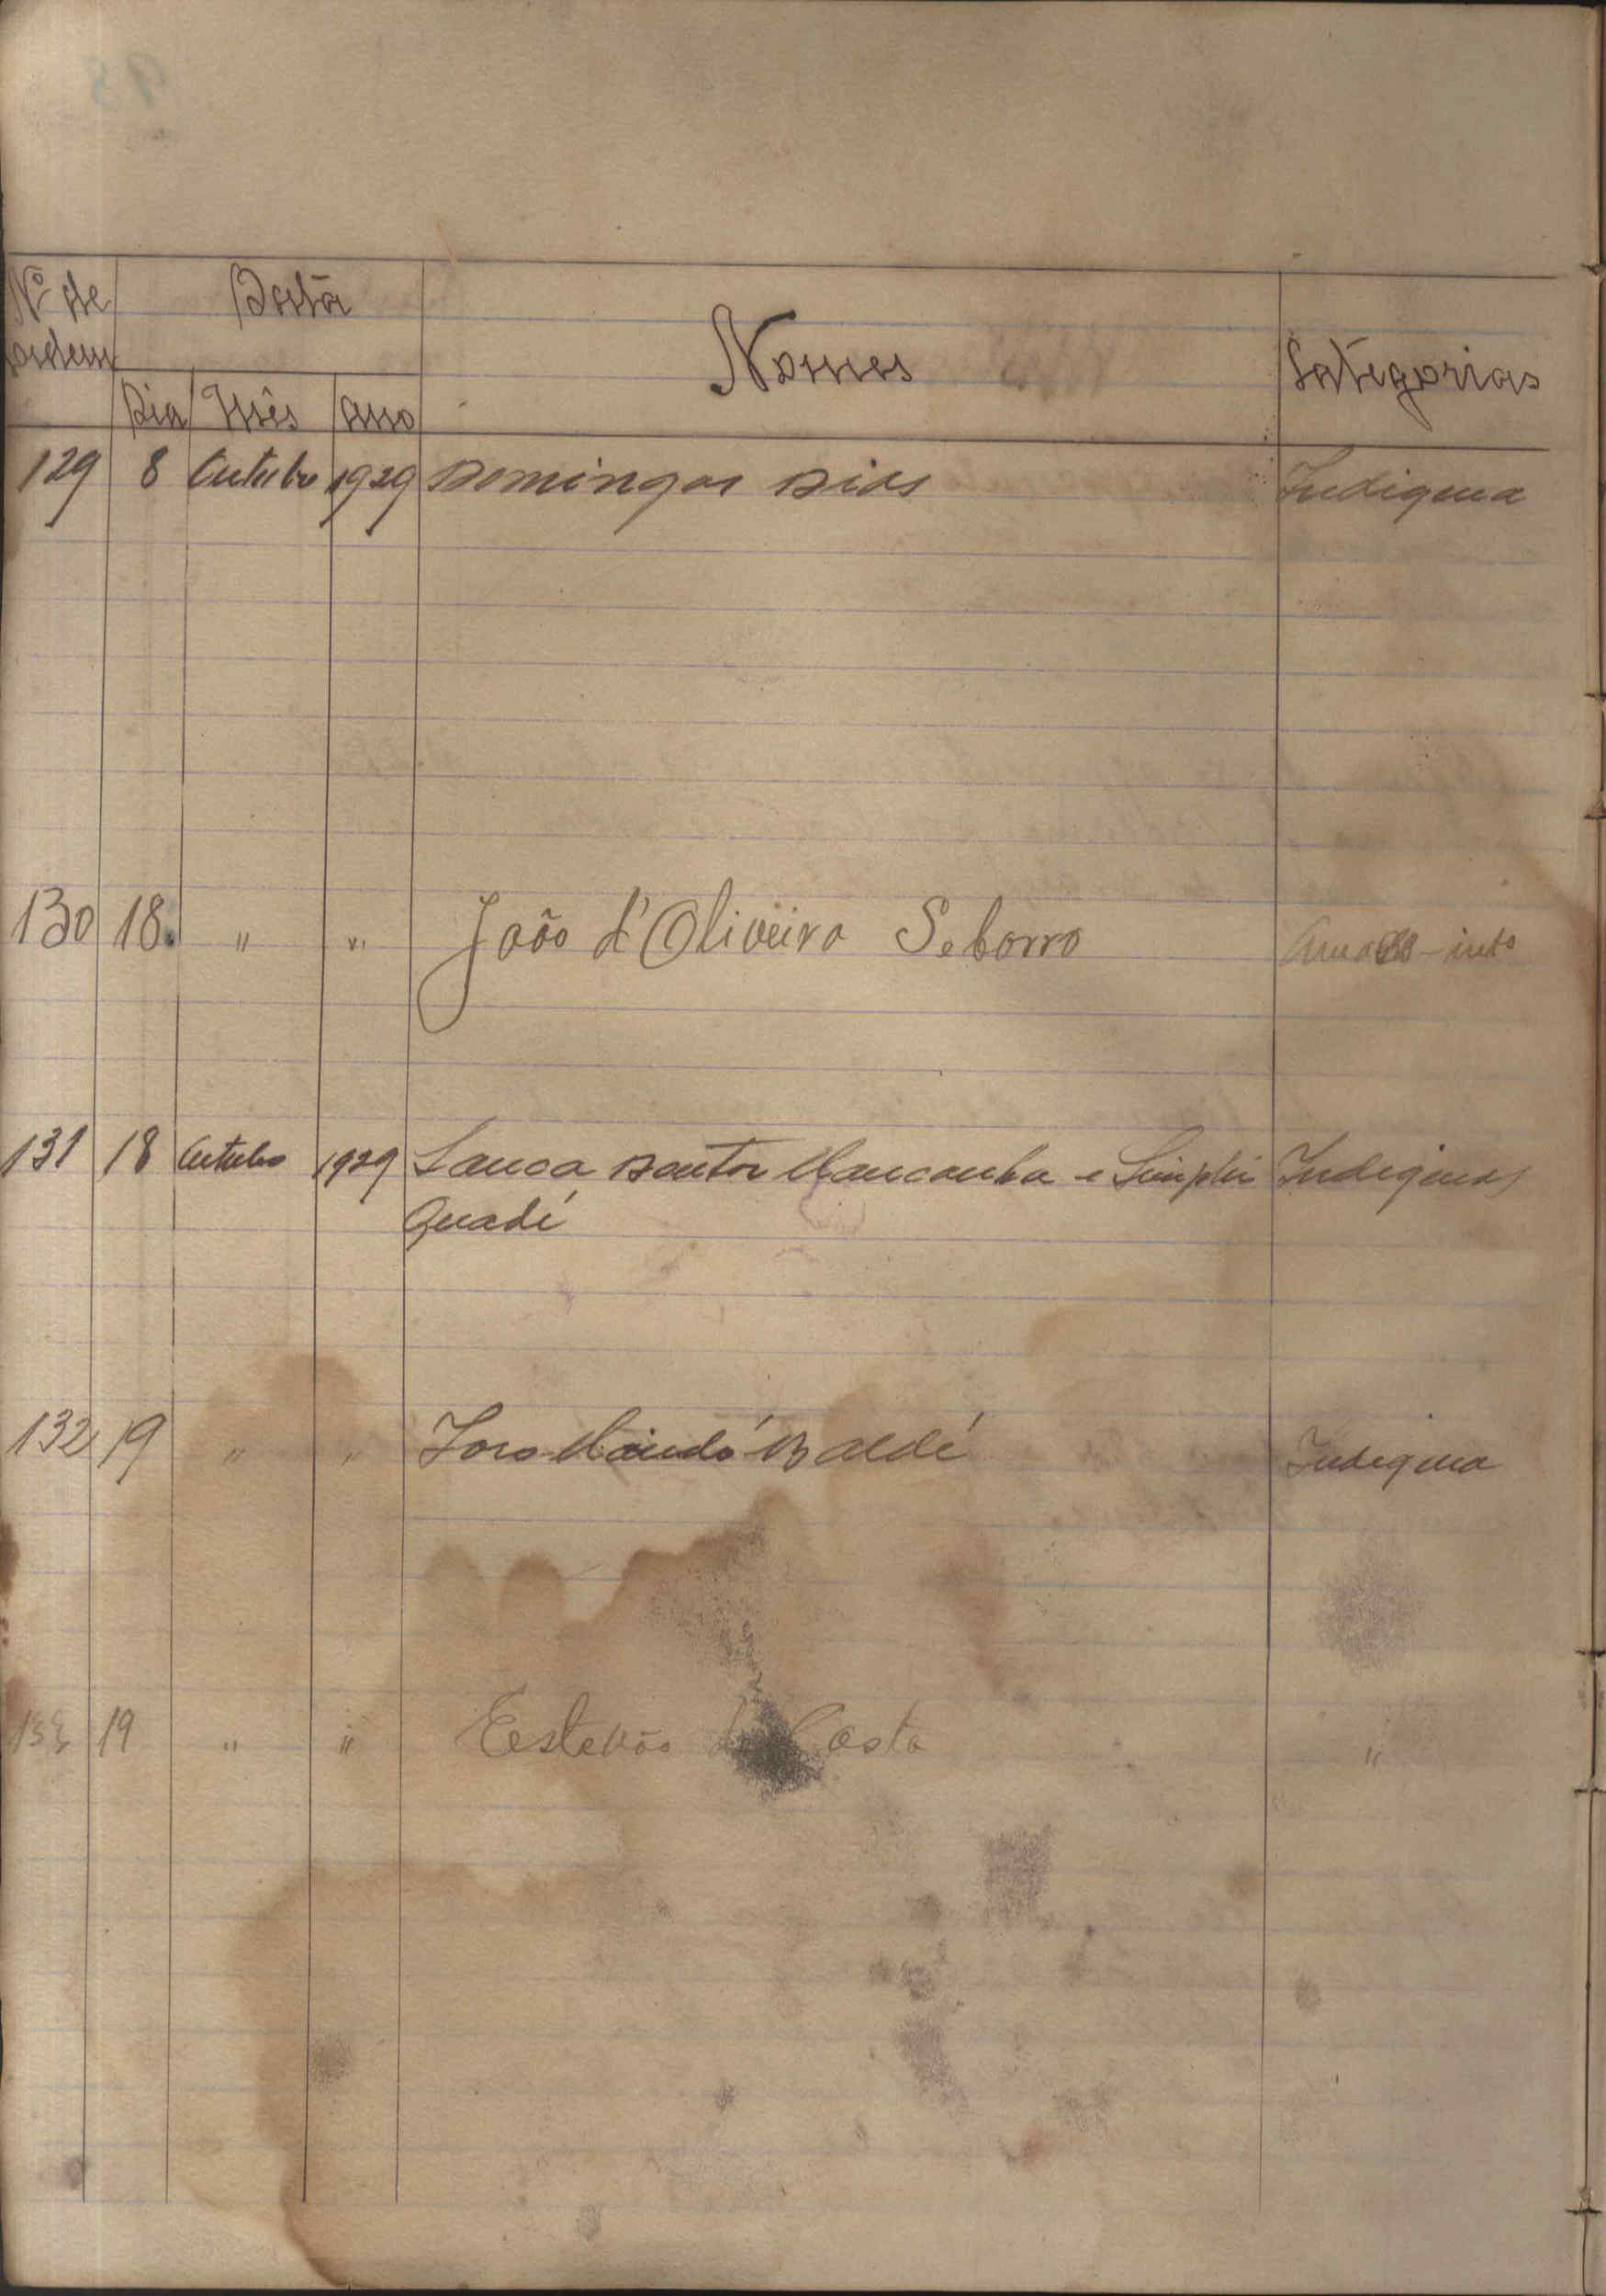 Nº de Data
ordem Nomes Categorias
Dia Mês Ano
129 8 Outubro 1929 Domingos Dias Indigena
130 18 " " João d'Oliveira Seborro
131 18 Outubro 1929 Sanca Mancanha e Indigenas
Quadé
132 19 " " Baldé Indigena
133 19 " " Estevão da Costa "